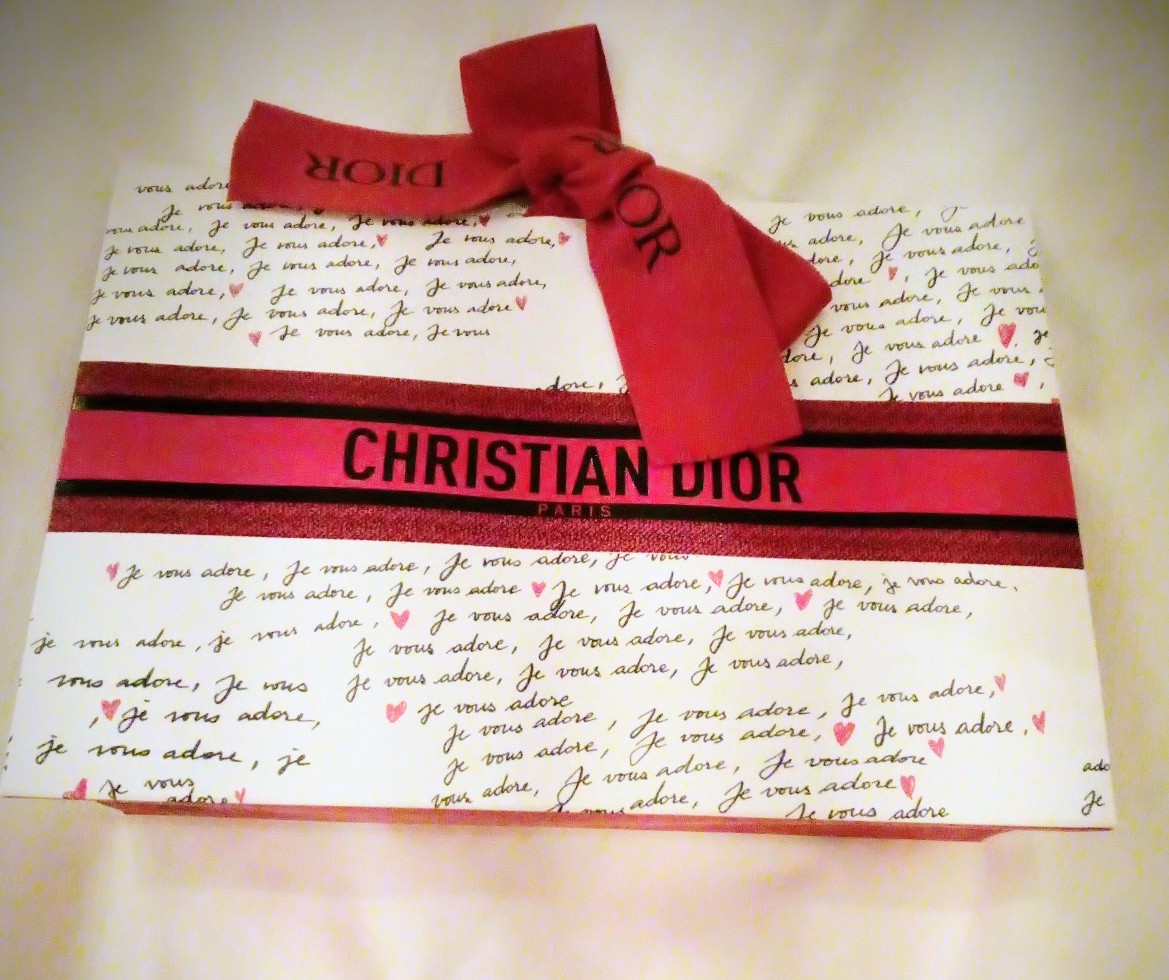 DIOR
DIOR
vous adore
Je vous
vous adore, Je vous adore, Je vous adore,
Je vous adore, Je vous adore, Je vous adore,
Je vous adore, Je vous adore, Je vous adore,
Je vous adore, Je vous adore, Je vous adore,
Je vous adore, Je vous adore, Je vous adore
Je vous adore, Je vous
Je vous adore,
adore, Je vous adore
adore, Je vous adore,
adore, Je vous ado
vous adore, Je vous
Je vous adore, Je vou
adore, Je vous adore, Je
adore, Je vous adore,
Je vous adore,
adore,
CHRISTIAN DIOR
PARIS
Je vous adore, Je vous adore, Je vous adore, Je vous
Je vous adore, Je vous adore Je vous adore, Je vous adore, je vous adore,
je vous adore, je vous adore, Je vous adore, Je vous adore, Je vous adore,
Je vous adore, Je vous adore, Je vous adore,
vous adore, Je vous Je vous adore, Je vous adore, Je vous adore,
, je vous adore, Je vous adore
Je vous adore, Je vous adore, Je vous adore,
je vous adore, je
Je vous adore, Je vous adore, Je vous adore,
Je vous adore, Je vous adore, Je vous adore
Je vous
adore
vous adore, Je vous adore, Je vous adore
Je vous adore, Je vous adore
Je vous adore
ado
Je